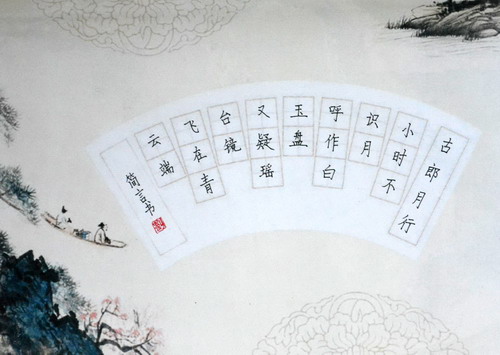 古郎月行
小时不
识月
呼作白
玉盘
又疑瑶
台镜
飞在青
云端
简言书